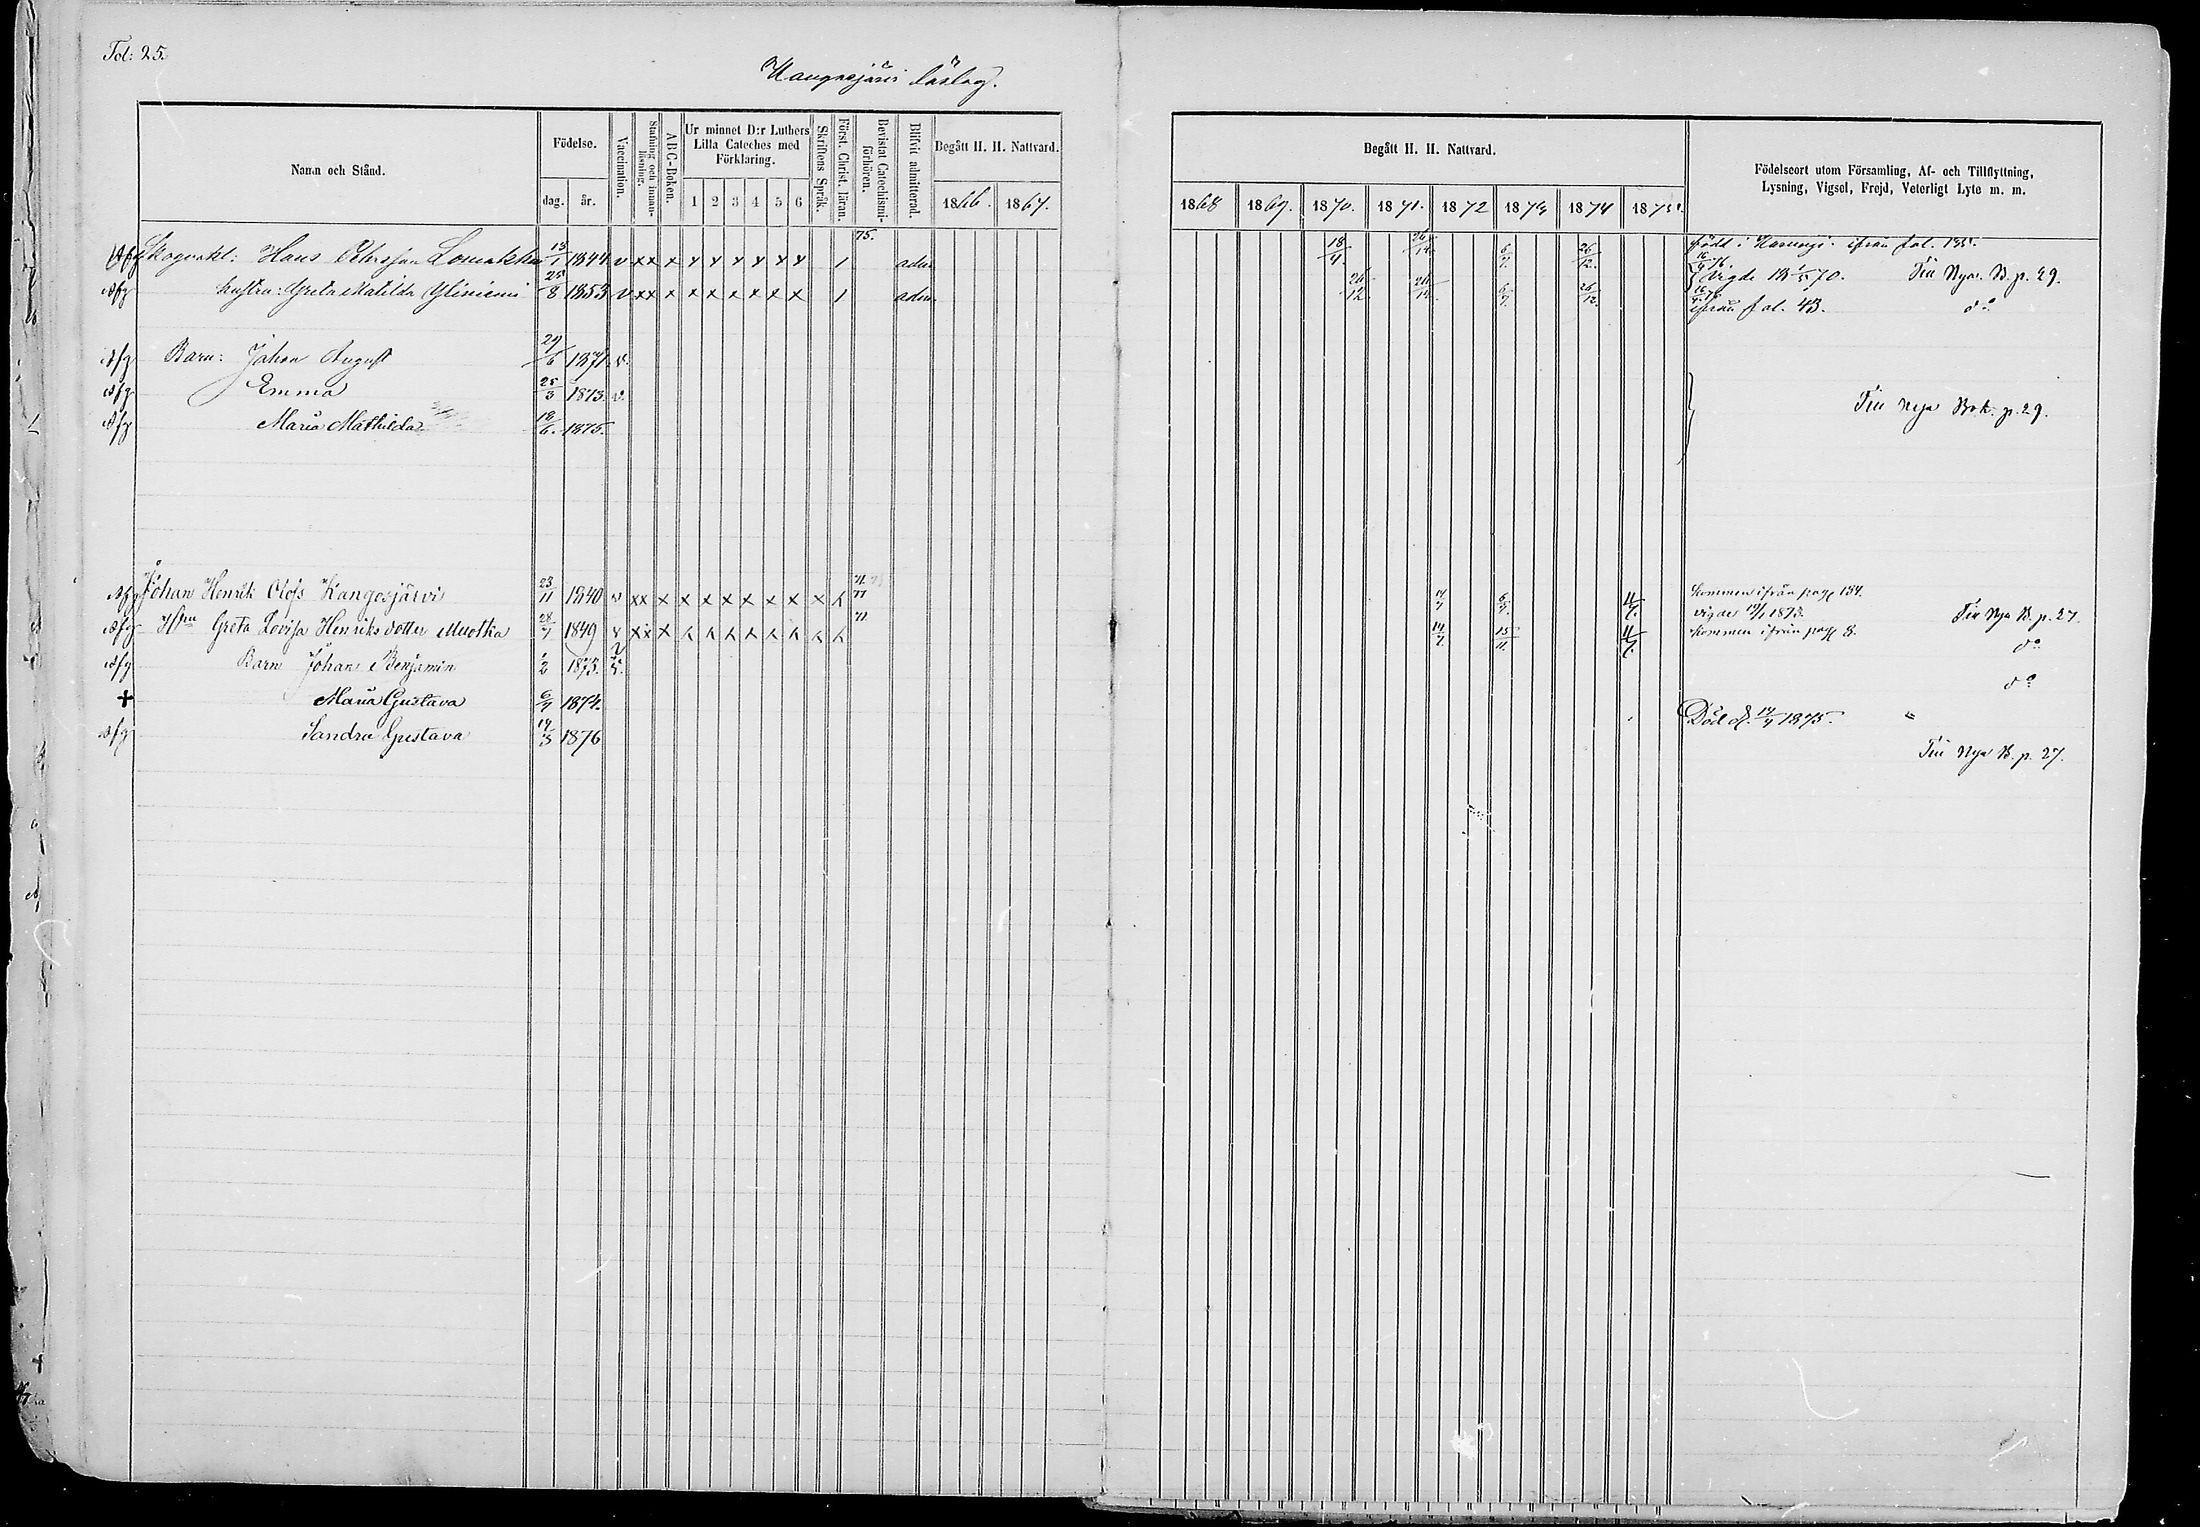 Fol: 25.
Kangosjärvi läslag.
Namn och Stånd.
Födelse.
dag. år.
Vaccination.
Stafning och innanläsning.
ABC-Boken.
Ur minnet D:r Luthers Lilla Cateches med Förklaring.
1 2 3 4 5 6
Skriftens Språk.
Först. Christ. läran.
Bevistat Catechismiförhören.
Blifvit admitterad.
Begått H. H. Nattvard.
1866. 1867.
Begått H. H. Nattvard.
1868 1869. 1870. 1871. 1872 1873 1874 1875.
Födelseort utom Församling, Af- och Tillflyttning,
Lysning, Vigsel, Frejd, Veterligt Lyte m. m.
75.
Afg Hans Pehrsson 13/1 1844 v xx x x x x x x x 1 adm 18/4. 6/7. 26/12. född i ifrån fol. 135.
Afg hustru: Greta Matilda Yliniemi 25/8 1853 v xx x x x x x x x 1 adm 26/12. 6/7. 26/12. Vigde 70. Till Nya B. p. 29.
ifrån fol. 43. do
Afg Barn: Johan August 29/6 1871. v.
Afg Emma 25/3 1873. v.
Till Nya Bok. p. 29.
Afg Maria Mathilda 18/6. 1875.
Afg Johan Henrik Olofs Kangosjärvi 23/11 1840 v xx x x x x x x x x x 71 77 14/7 6/7. 11/7. kommen ifrån pag 134.
vigde 1873. Till Nya B. p. 27.
Afg Hru Greta Lovisa Henriksdotter Muotka 28/7 1849 v xx x x x x x x x x x 14/7. 15/11. 11/7. kommen ifrån pag 8.
do
Afg Barn Johan Benjamin 1/2 1873. v.
do
+ Maria Gustava 6/7 1874. Död d. 14/7 1875. "
Afg Sandra Gustava 14/3 1876
Till Nya B. p. 27.